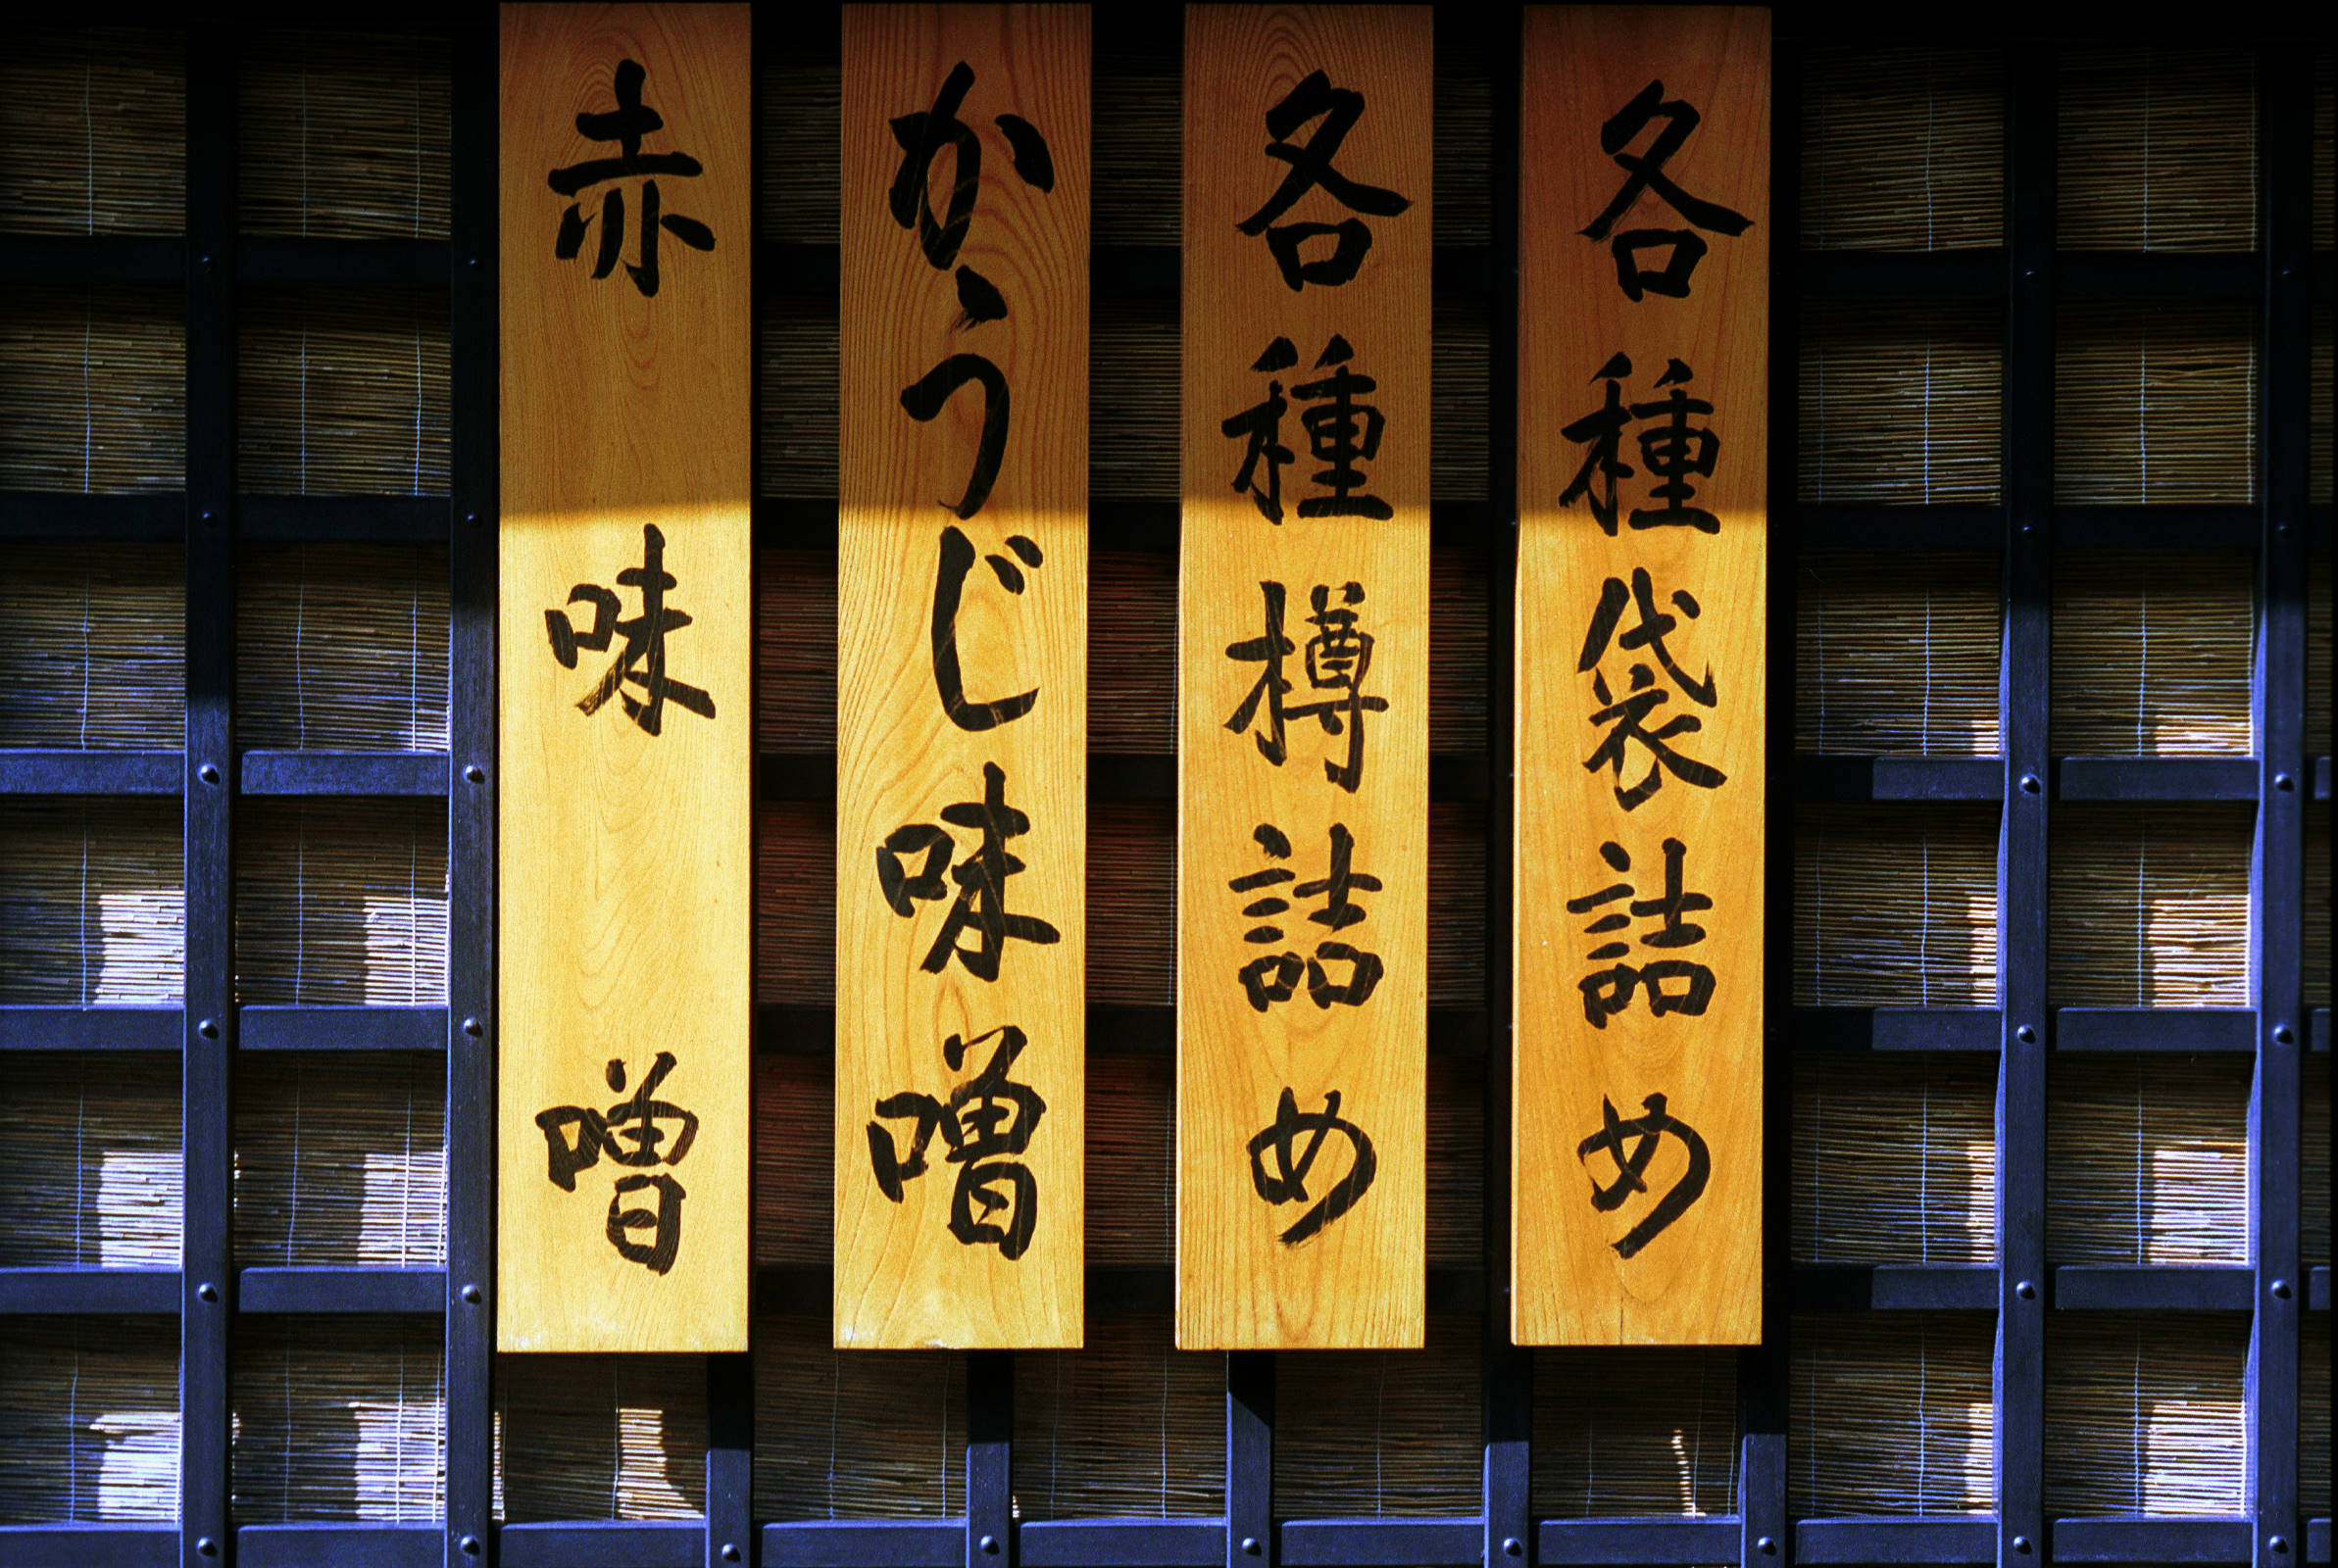 各種袋詰め
各種樽詰め
かうじ味噌
赤味噌